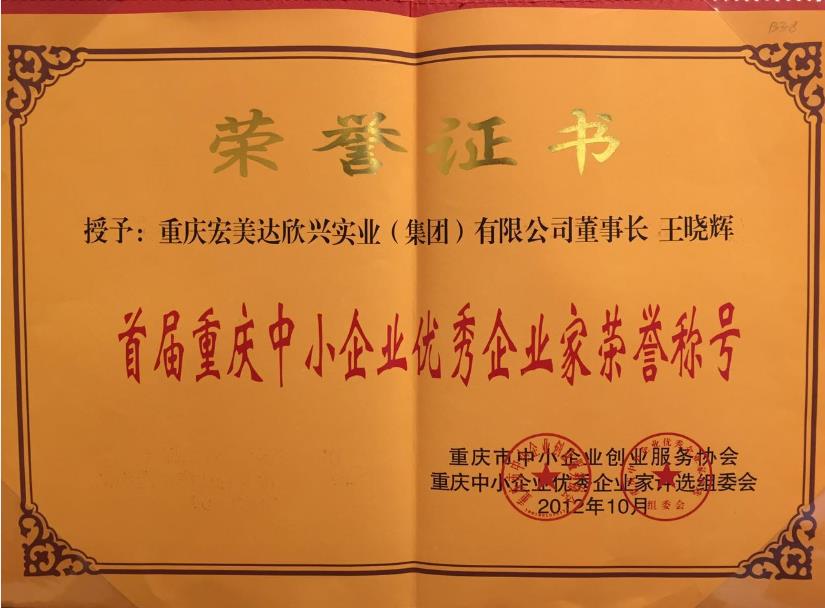 荣誉证书
授予：重庆宏美达欣兴实业（集团）有限公司董事长 王晓辉
首届重庆中小企业优秀企业家荣誉称号
重庆市中小企业创业服务协会
重庆中小企业优秀企业家评选组委会
2012年10月
组委会